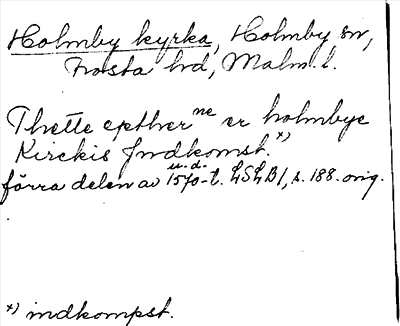 Holmby kyrka, Holmby sn,
Frosta hd, Malm. l.
Thette epther ne er holmbye
Kirckis Jndkomst. x)
förra delen av 1570-t. u.d. LSLB1, s. 188. orig.
x) indkompst.